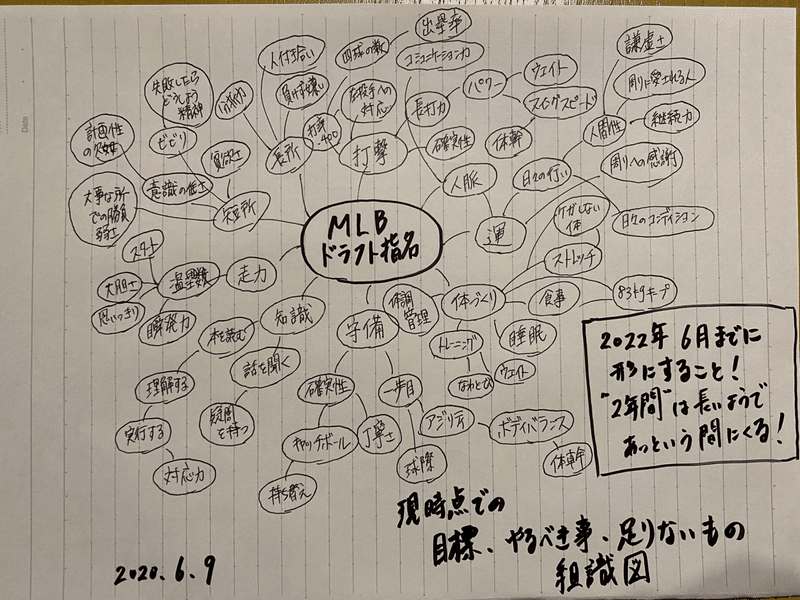 Date
MLB
ドラフト指名
長所
人付き合い
負けず嫌い
行動力
失敗したら
どうしよう
精神
計画性
の欠如
ビビリ
大事な所
での勝負
弱さ
意識の低さ
短所
打撃
打率
.400
四球の数
出塁率
コミュニケーション力
左投手への
対応
長打力
パワー
ウェイト
スイングスピード
体幹
確実性
人脈
運
日々の行い
人間性
謙虚さ
周りに愛される人
継続力
周りへの感謝
日々のコンディション
ケガしない
体
ストレッチ
体づくり
食事
83キロキープ
睡眠
トレーニング
なわとび
ウェイト
体調
管理
守備
確実性
キャッチボール
持ち替え
丁寧さ
一歩目
球際
アジリティ
ボディバランス
体幹
知識
本を読む
理解する
実行する
対応力
話を聞く
疑問
を持つ
走力
盗塁数
スタート
大胆さ
思いっきり
瞬発力
2022年 6月までに
形にすること!
"2年間"は長いようで
あっという間にくる!
現時点での
目標、やるべき事、足りないもの
組識図
2020.6.9